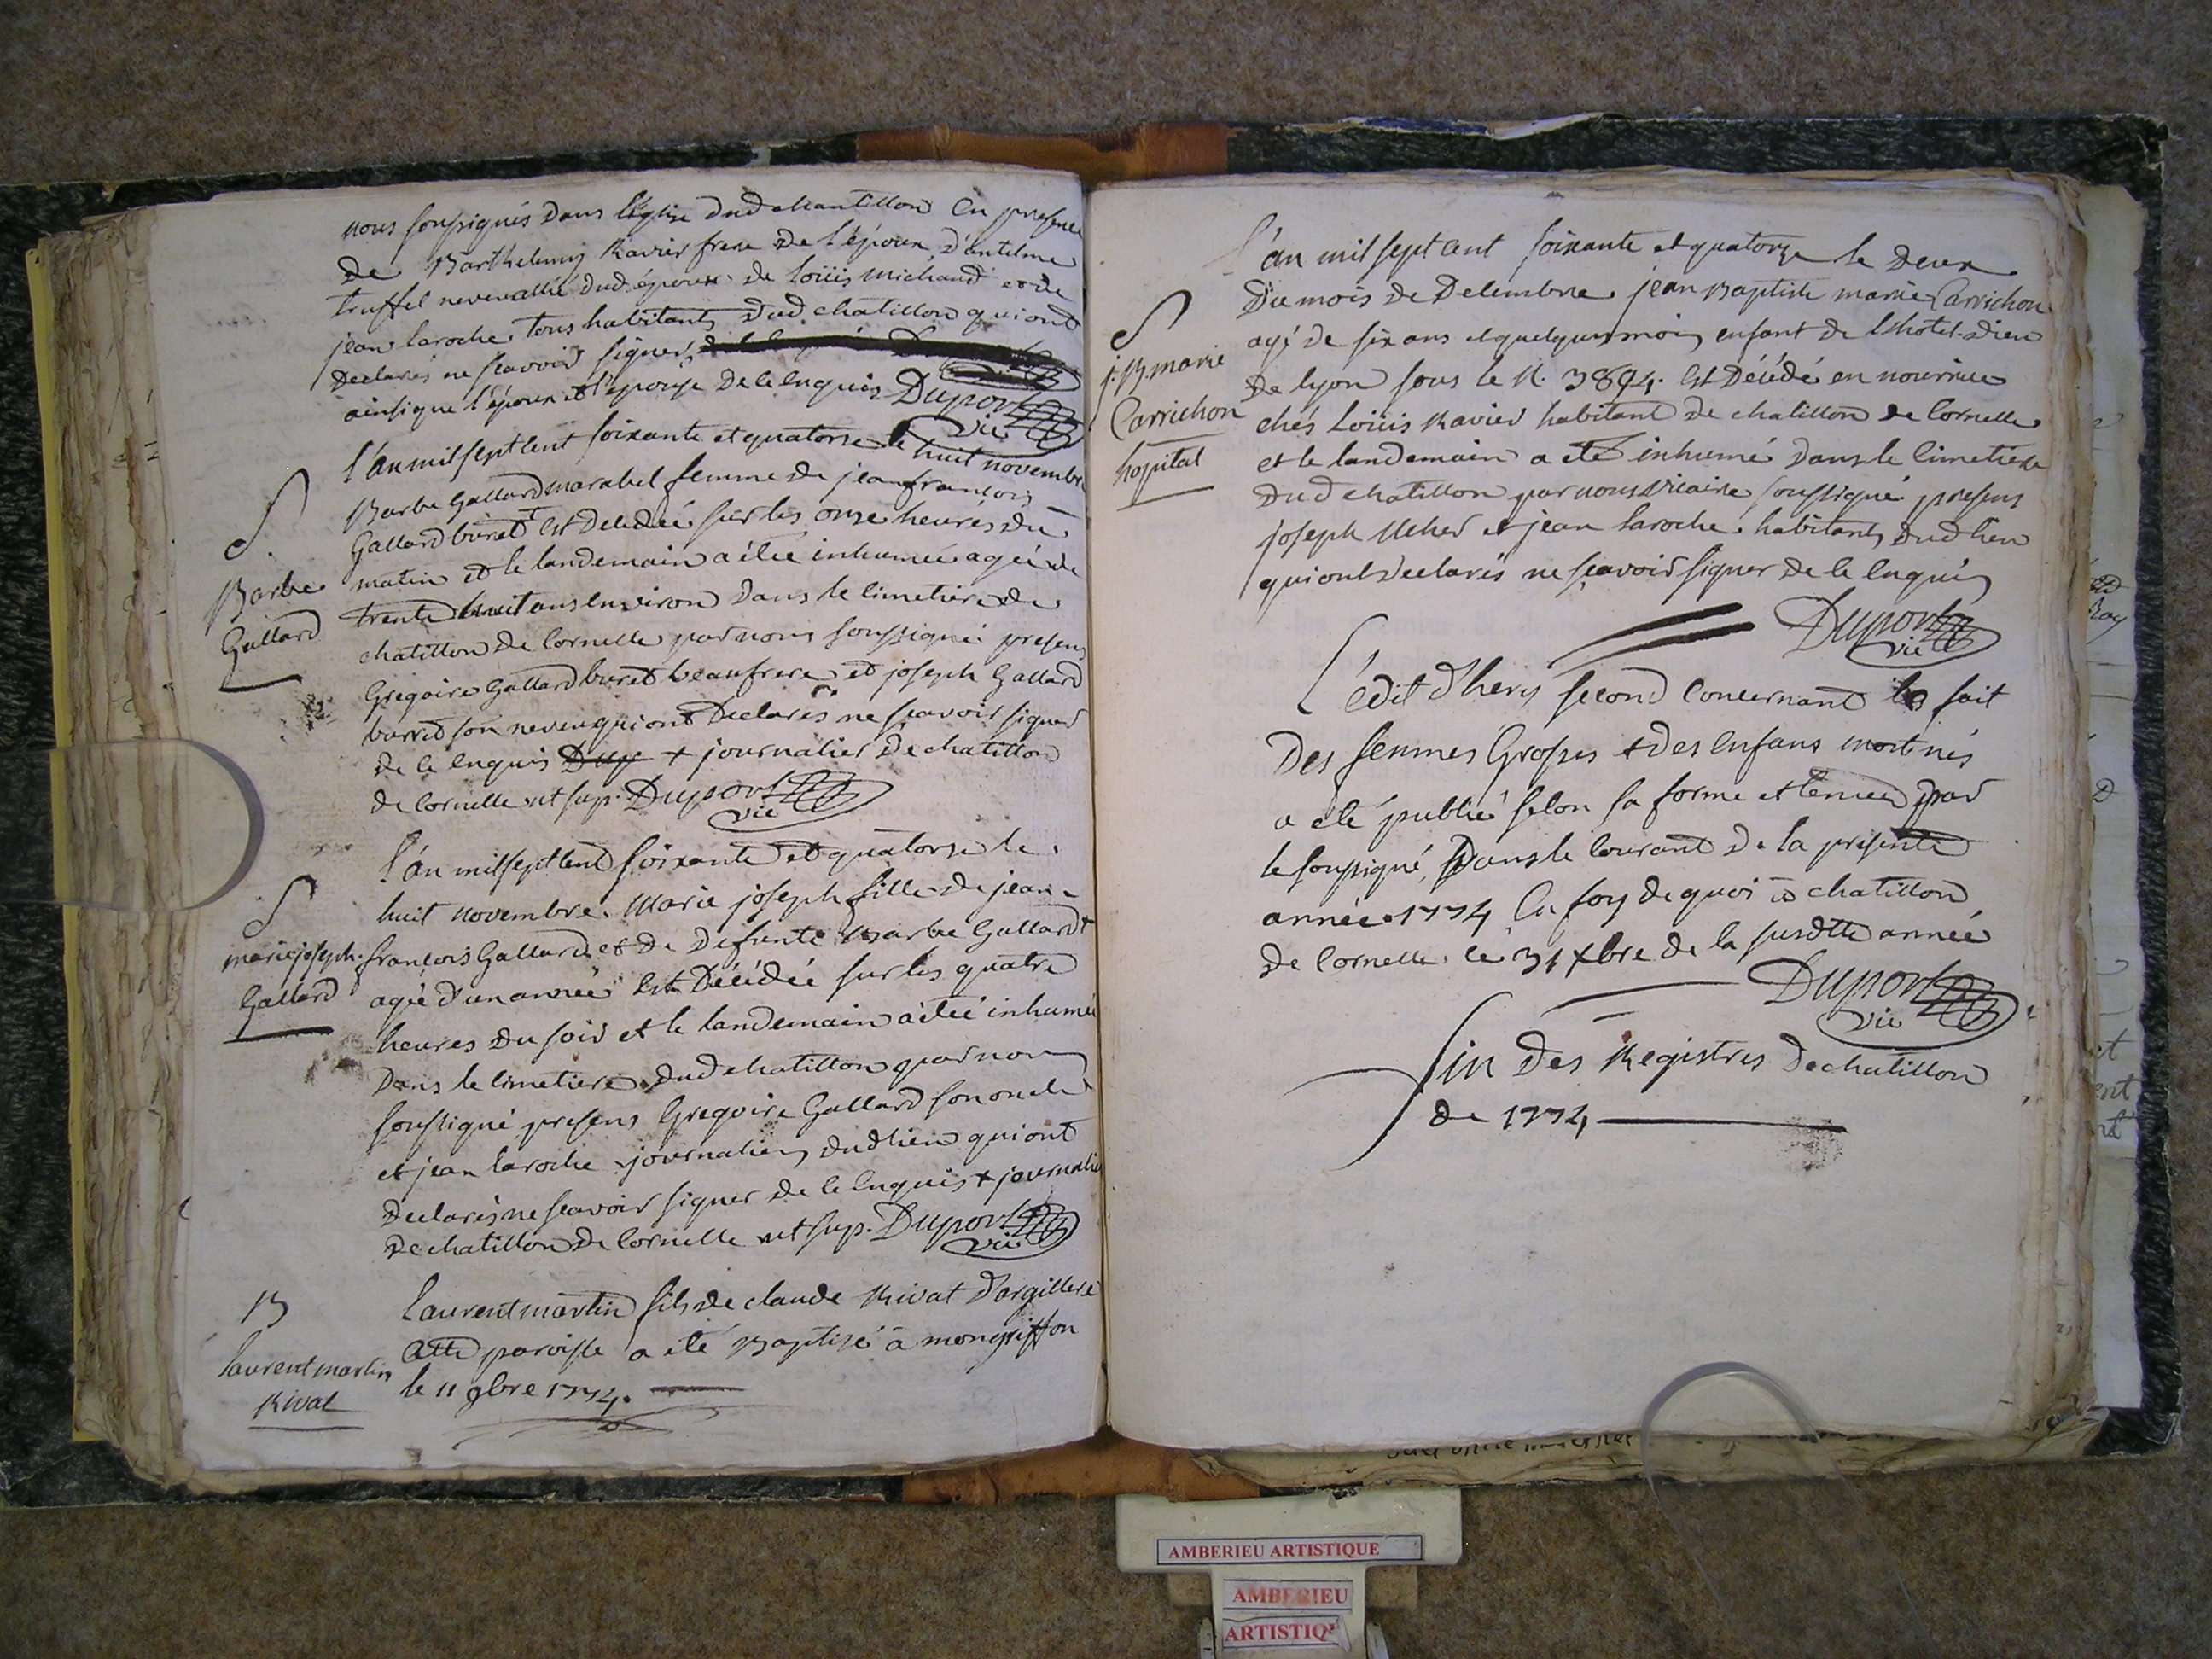 nous soussignés dans l'église dud chantillon en presence
de Barthelemy Ravier frere de l'époux, d'antelme
truffel neveu allié dud époux de loüis michaud et de
jean laroche tous habitants dud chatillon qui ont
declarés ne sçavoir signer,
ainsi que l'époux et l'épouse de ce enquis Dupont
vic
l'an mil sept cent soixante et quatorse le huit novembre
Barbe Gallard marabel femme de jean françois
Gallard buret + est décédée sur les onse heures du
matin et le landemain a étée inhumée agée de
trente huit ans environ dans le cimetiere de
chatillon de Cornelle par nous soussigné presens
Gregoire Gallard buret beaufrere et joseph Gallard
burret son neveu qui ont declarés ne sçavoir signer
de ce enquis Dup + journalier de chatillon
de Cornelle ut sup. Dupont
vic
S
Barbe
Gallard
l'an mil sept cent soixante et quatorse le
huit novembre. Marie joseph fille de jean
françois Gallard et de defunte Barbe Gallard +
agée d'un année est décédée sur les quatre
heures du soir et le landemain a étée inhumée
Dans le cimetiere dud chatillon par nous
soussigné presens Gregoire Gallard son oncle
et jean laroche journaliers dud lieu qui ont
declarés ne sçavoir signer de ce enquis + journalier
de chatillon de Cornelle ut sup. Dupont
vic
S
marie joseph
Gallard
B
laurent martin
Rivat
Laurent martin fils de claude Rivat d'argillere
cette paroisse a été Baptisé à mongriffon
le 11 9bre 1774.
S
j. B. marie
Carrichon
hopital
l'an mil sept cent soixante et quatorze le deux
Du mois de Decembre jean Baptiste marie Carrichon
agé de six ans et quelques mois enfant de l'hôtel-dieu
de lyon sous le N. 3894. est décédé en nourrice
chés Loüis Ravier habitant de chatillon de Cornelle
et le landemain a été inhumé dans le cimetiere
dud chatillon par nous vicaire soussigné presens
joseph et jean laroche habitants dud lieu
qui ont declarés ne sçavoir signer de ce enquis
Dupont
vic
L'édit d'hery second concernant le fait
des femmes Grosses & des enfans mort nés
a été publié selon sa forme et teneur par
le soussigné, Dans le courant de la presente
année 1774 En foy de quoi à chatillon
de Cornelle ce 31 Xbre de la susdtte année
Dupont
vic
fin des Registres de chatillon
de 1774
AMBERIEU ARTISTIQUE
AMBERIEU
ARTISTIQ